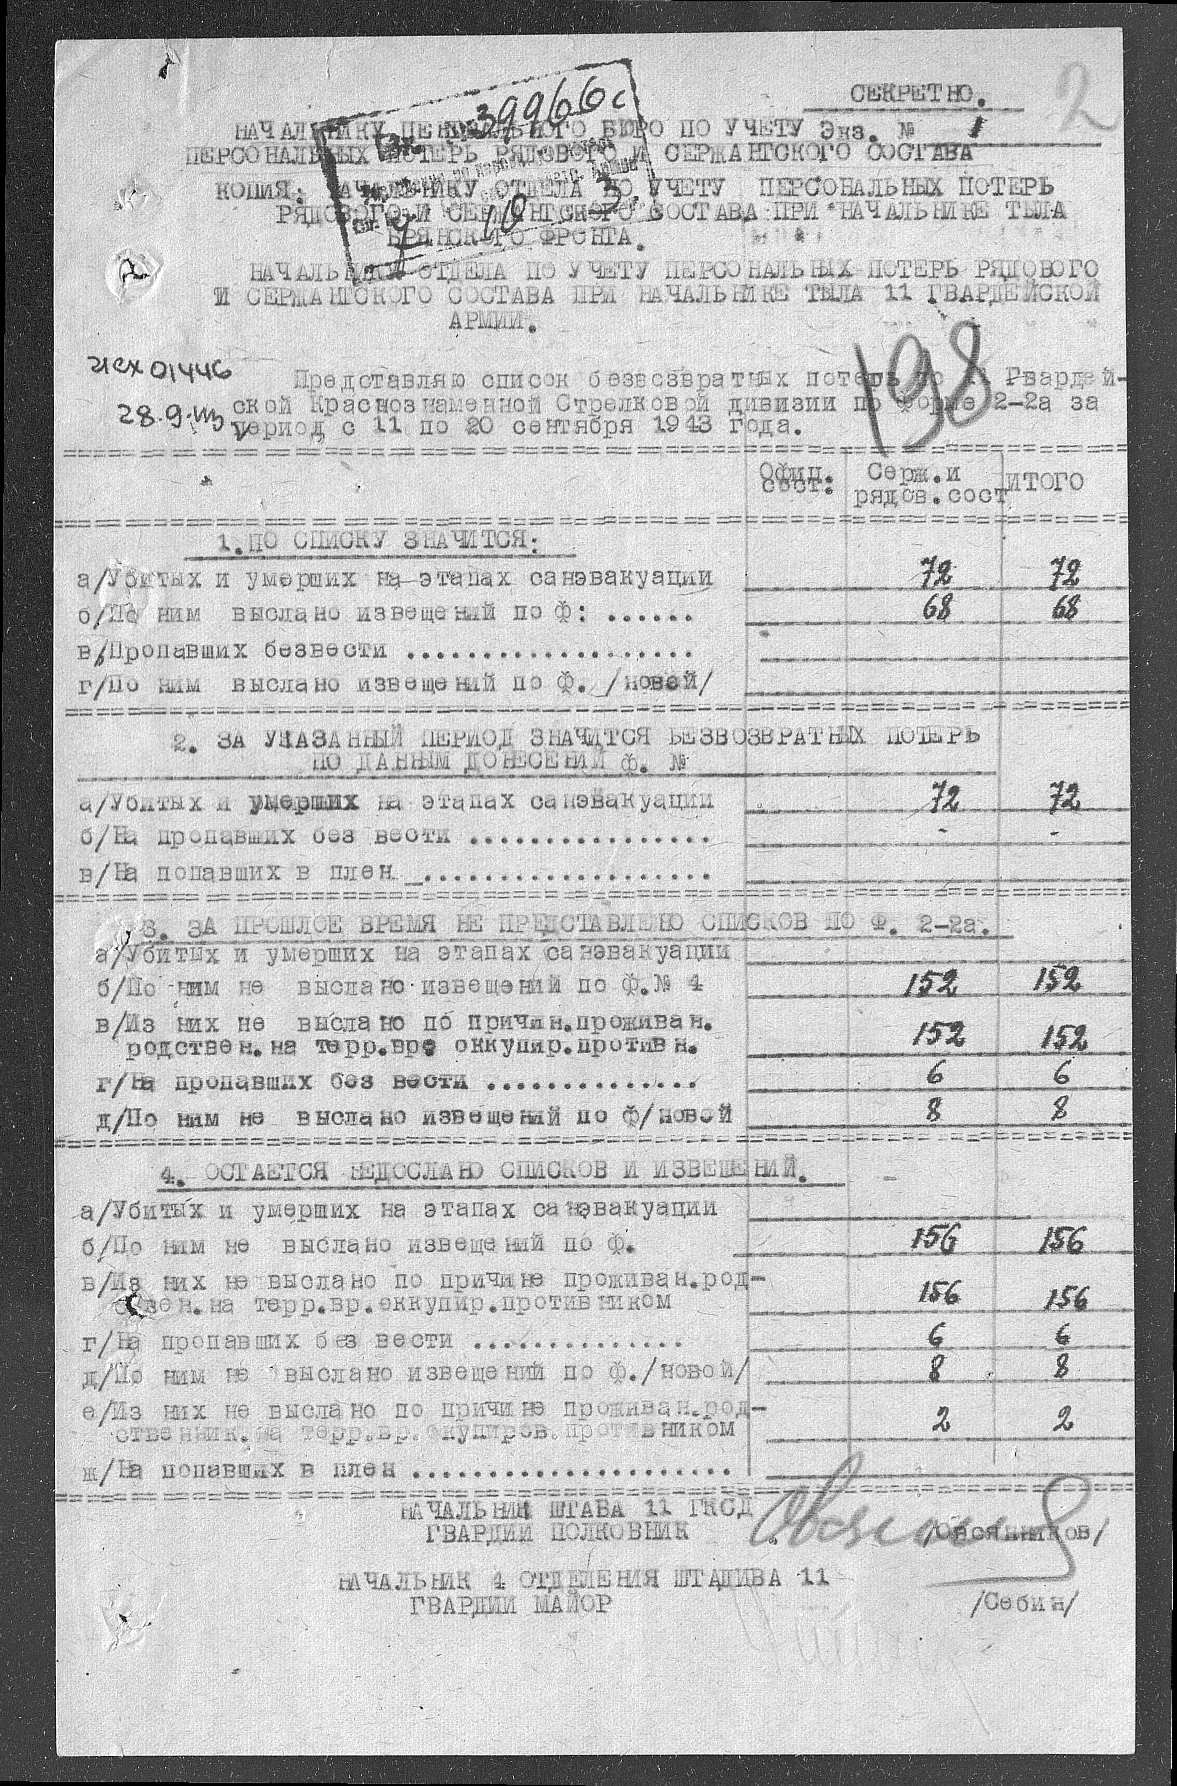 2
СЕКРЕТНО.
39966с
НАЧАЛЬНИКУ ЦЕНТРАЛЬНОГО БЮРО ПО УЧЕТУ Экз. № 1
ПЕРСОНАЛЬНЫХ ПОТЕРЬ РЯДОВОГО И СЕРЖАНТСКОГО СОСТАВА
КОПИЯ: НАЧАЛЬНИКУ ОТДЕЛА ПО УЧЕТУ ПЕРСОНАЛЬНЫХ ПОТЕРЬ
РЯДОВОГО И СЕРЖАНТСКОГО СОСТАВА ПРИ НАЧАЛЬНИКЕ ТЫЛА
БРЯНСКОГО ФРОНТА.
9 10 3
НАЧАЛЬНИКУ ОТДЕЛА ПО УЧЕТУ ПЕРСОНАЛЬНЫХ ПОТЕРЬ РЯДОВОГО
И СЕРЖАНТСКОГО СОСТАВА ПРИ НАЧАЛЬНИКЕ ТЫЛА 11 ГВАРДЕЙСКОЙ
АРМИИ.
198
исх 01446
28.9.43
Представляю список безвозвратных потерь по 11 Гвардей-
ской Краснознаменной Стрелковой дивизии по форме 2-2а за
период с 11 по 20 сентября 1943 года.
Офиц. сост. Серж.и рядов.сост ИТОГО
1. ПО СПИСКУ ЗНАЧИТСЯ:
а/Убитых и умерших на этапах санэвакуации 72 72
б/По ним выслано извещений по Ф: ...... 68 68
в/Пропавших безвести ...................
г/По ним выслано извещений по Ф. /новой/
2. ЗА УКАЗАННЫЙ ПЕРИОД ЗНАЧИТСЯ БЕЗВОЗВРАТНЫХ ПОТЕРЬ
ПО ДАННЫМ ДОНЕСЕНИЙ Ф. №
а/Убитых и умерших на этапах санэвакуации 72 72
б/На пропавших без вести ................ - -
в/На попавших в плен ...................
3. ЗА ПРОШЛОЕ ВРЕМЯ НЕ ПРЕДСТАВЛЕНО СПИСКОВ ПО Ф. 2-2а.
а/Убитых и умерших на этапах санэвакуации
б/По ним не выслано извещений по Ф.№ 4 152 152
в/Из них не выслано по причин.проживан.
родствен.на терр.вре оккупир.противн. 152 152
г/На пропавших без вести .............. 6 6
д/По ним не выслано извещений по ф/новой 8 8
4. ОСТАЕТСЯ НЕДОСЛАНО СПИСКОВ И ИЗВЕЩЕНИЙ. -
а/Убитых и умерших на этапах санэвакуации
б/По ним не выслано извещений по Ф. 156 156
в/Из них не выслано по причине проживан.род-
ствен.на терр.вр.оккупир.противником 156 156
г/На пропавших без вести .............. 6 6
д/По ним не выслано извещений по ф./новой/ 8 8
е/Из них не выслано по причине проживан.род-
ственник.на терр.вр.окупиров.противником 2 2
ж/На попавших в плен .....................
НАЧАЛЬНИК ШТАБА 11 ГКСД
ГВАРДИИ ПОЛКОВНИК /Овсянников/
НАЧАЛЬНИК 4 ОТДЕЛЕНИЯ ШТАДИВА 11
ГВАРДИИ МАЙОР /Себин/